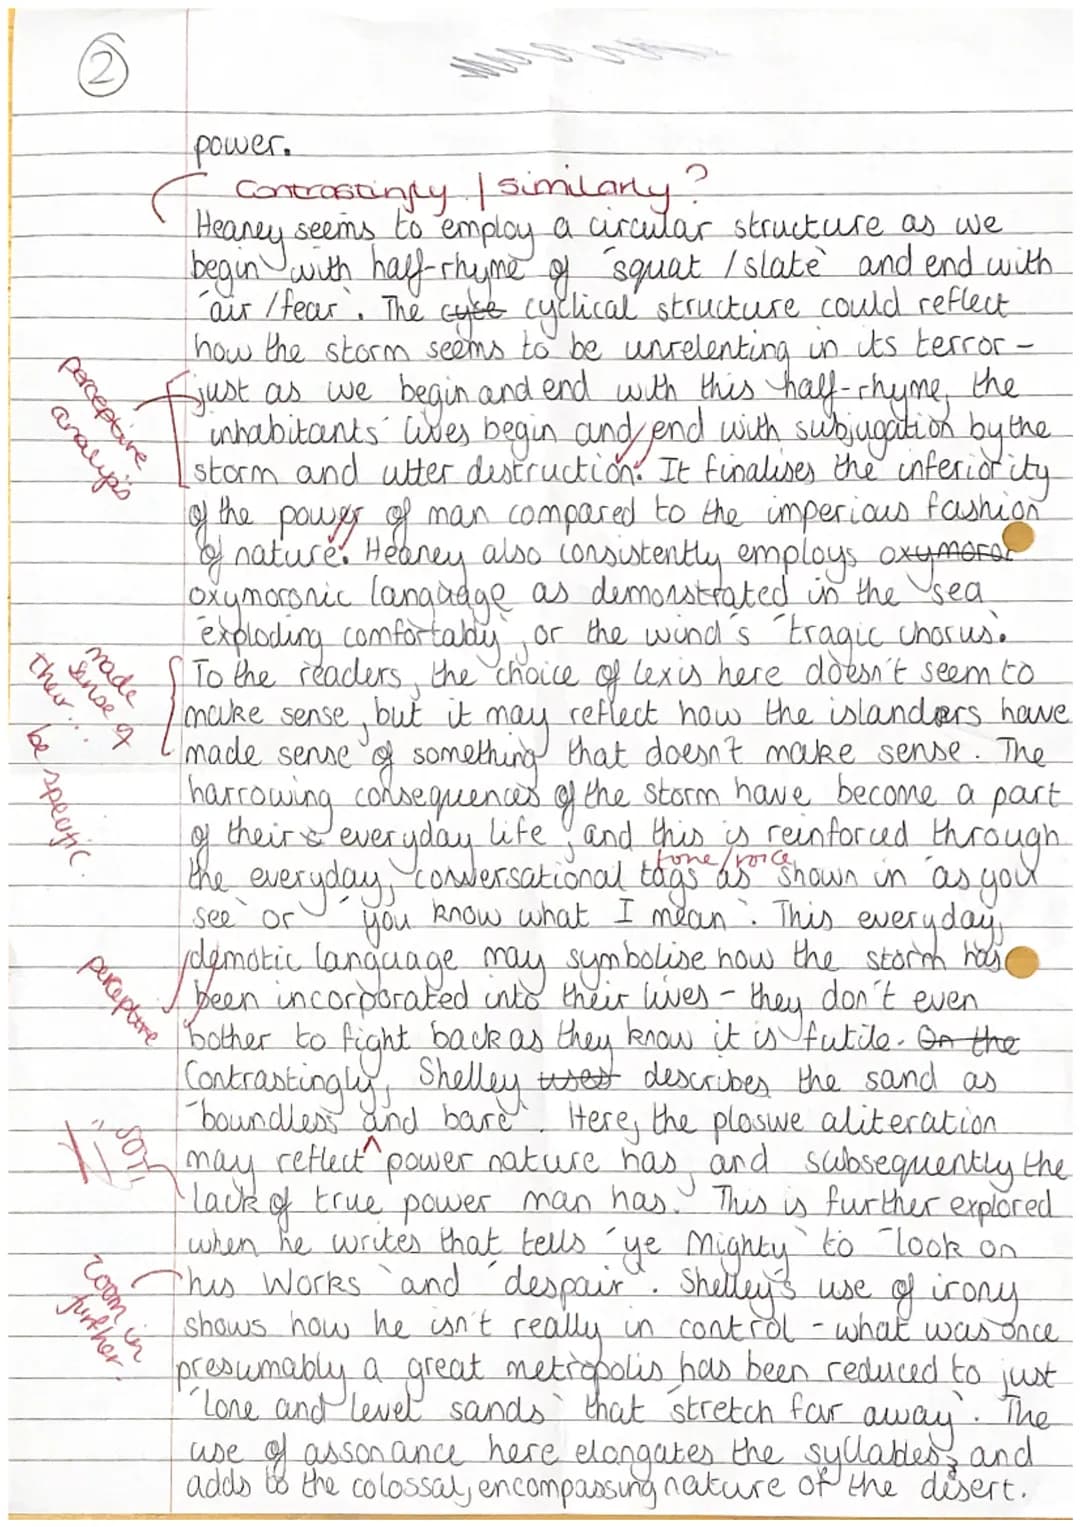 2
power.
Contrastingly / similarly?
Heaney seems to employ a circular structure as we
begin with half-rhyme of 'squat / slate' and end with
'air / fear'. The cyce cyclical structure could reflect
how the storm seems to be unrelenting in its terror -
perceptive
analysis
just as we begin and end with this half-rhyme, the
inhabitants' lives begin and end with subjugation by the
storm and utter destruction. It finalises the inferiority
of the power of man compared to the imperious fashion
of nature. Heaney also consistently employs oxymoror
oxymoronic language as demonstrated in the sea
'exploding comfortably', or the wind's 'tragic chorus'.
made
sense of
their...
be specific.
To the readers, the choice of lexis here doesn't seem to
make sense, but it may reflect how the islanders have
made sense of something that doesn't make sense. The
harrowing consequences of the storm have become a part
of their everyday life, and this is reinforced through
tone/voice
the everyday, conversational tags as shown in 'as you
see' or 'you know what I mean'. This everyday,
perceptive
demotic language may symbolise how the storm has
been incorporated into their lives - they don't even
bother to fight back as they know it is futile. On the
Contrastingly, Shelley uses describes the sand as
'boundless and bare'. Here, the plosive aliteration
may reflect power nature has, and subsequently the
lack of true power man has. This is further explored
when he writes that tells 'ye Mighty' to 'look on
zoom in
further.
his Works' and 'despair'. Shelley's use of irony
shows how he isn't really in control - what was once
presumably a great metropolis has been reduced to just
'lone and level sands' that 'stretch far away'. The
use of assonance here elongates the syllables, and
adds to the colossal, encompassing nature of the desert.